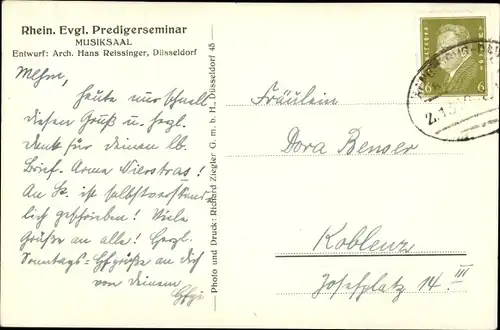 Rhein. Evgl. Predigerseminar
MUSIKSAAL
Entwurf: Arch. Hans Reissinger, Düsseldorf
heute nur schnell
diesen Gruß u. hzgl.
Dank für deinen lb.
Brief. Arme Dierstras!
An Sr. ist selbstverständ-
lich geschrieben! Viele
Grüße an alle! Herzl.
Sonntags-Grüße an dich
von deinem
Photo und Druck: Richard Ziegler G. m. b. H., Düsseldorf 45
Fräulein
Dora Benser
Koblenz
Josefplatz 14. III
6 6